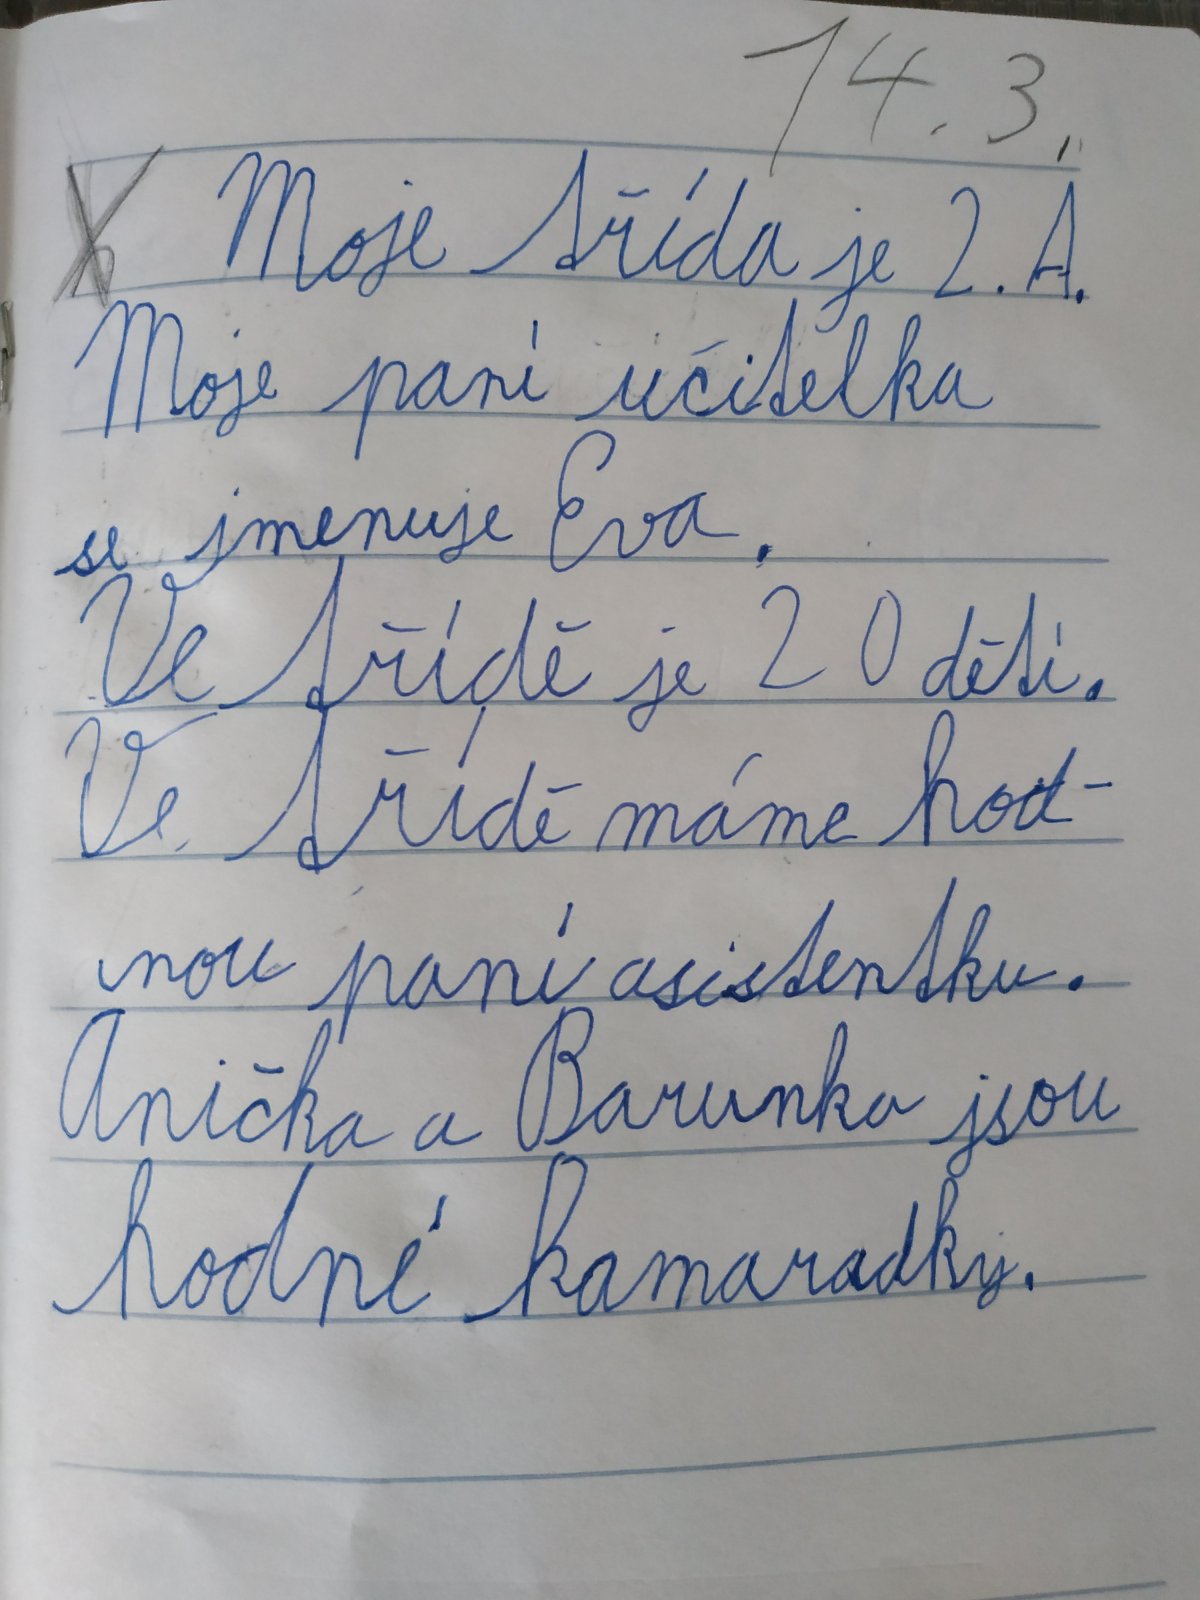 14.3.
Moje třída je 2. A.
Moje paní učitelka
se jmenuje Eva.
Ve třídě je 20 dětí.
Ve třídě máme hod-
nou paní asistentku.
Anička a Barunka jsou
hodné kamaradky.